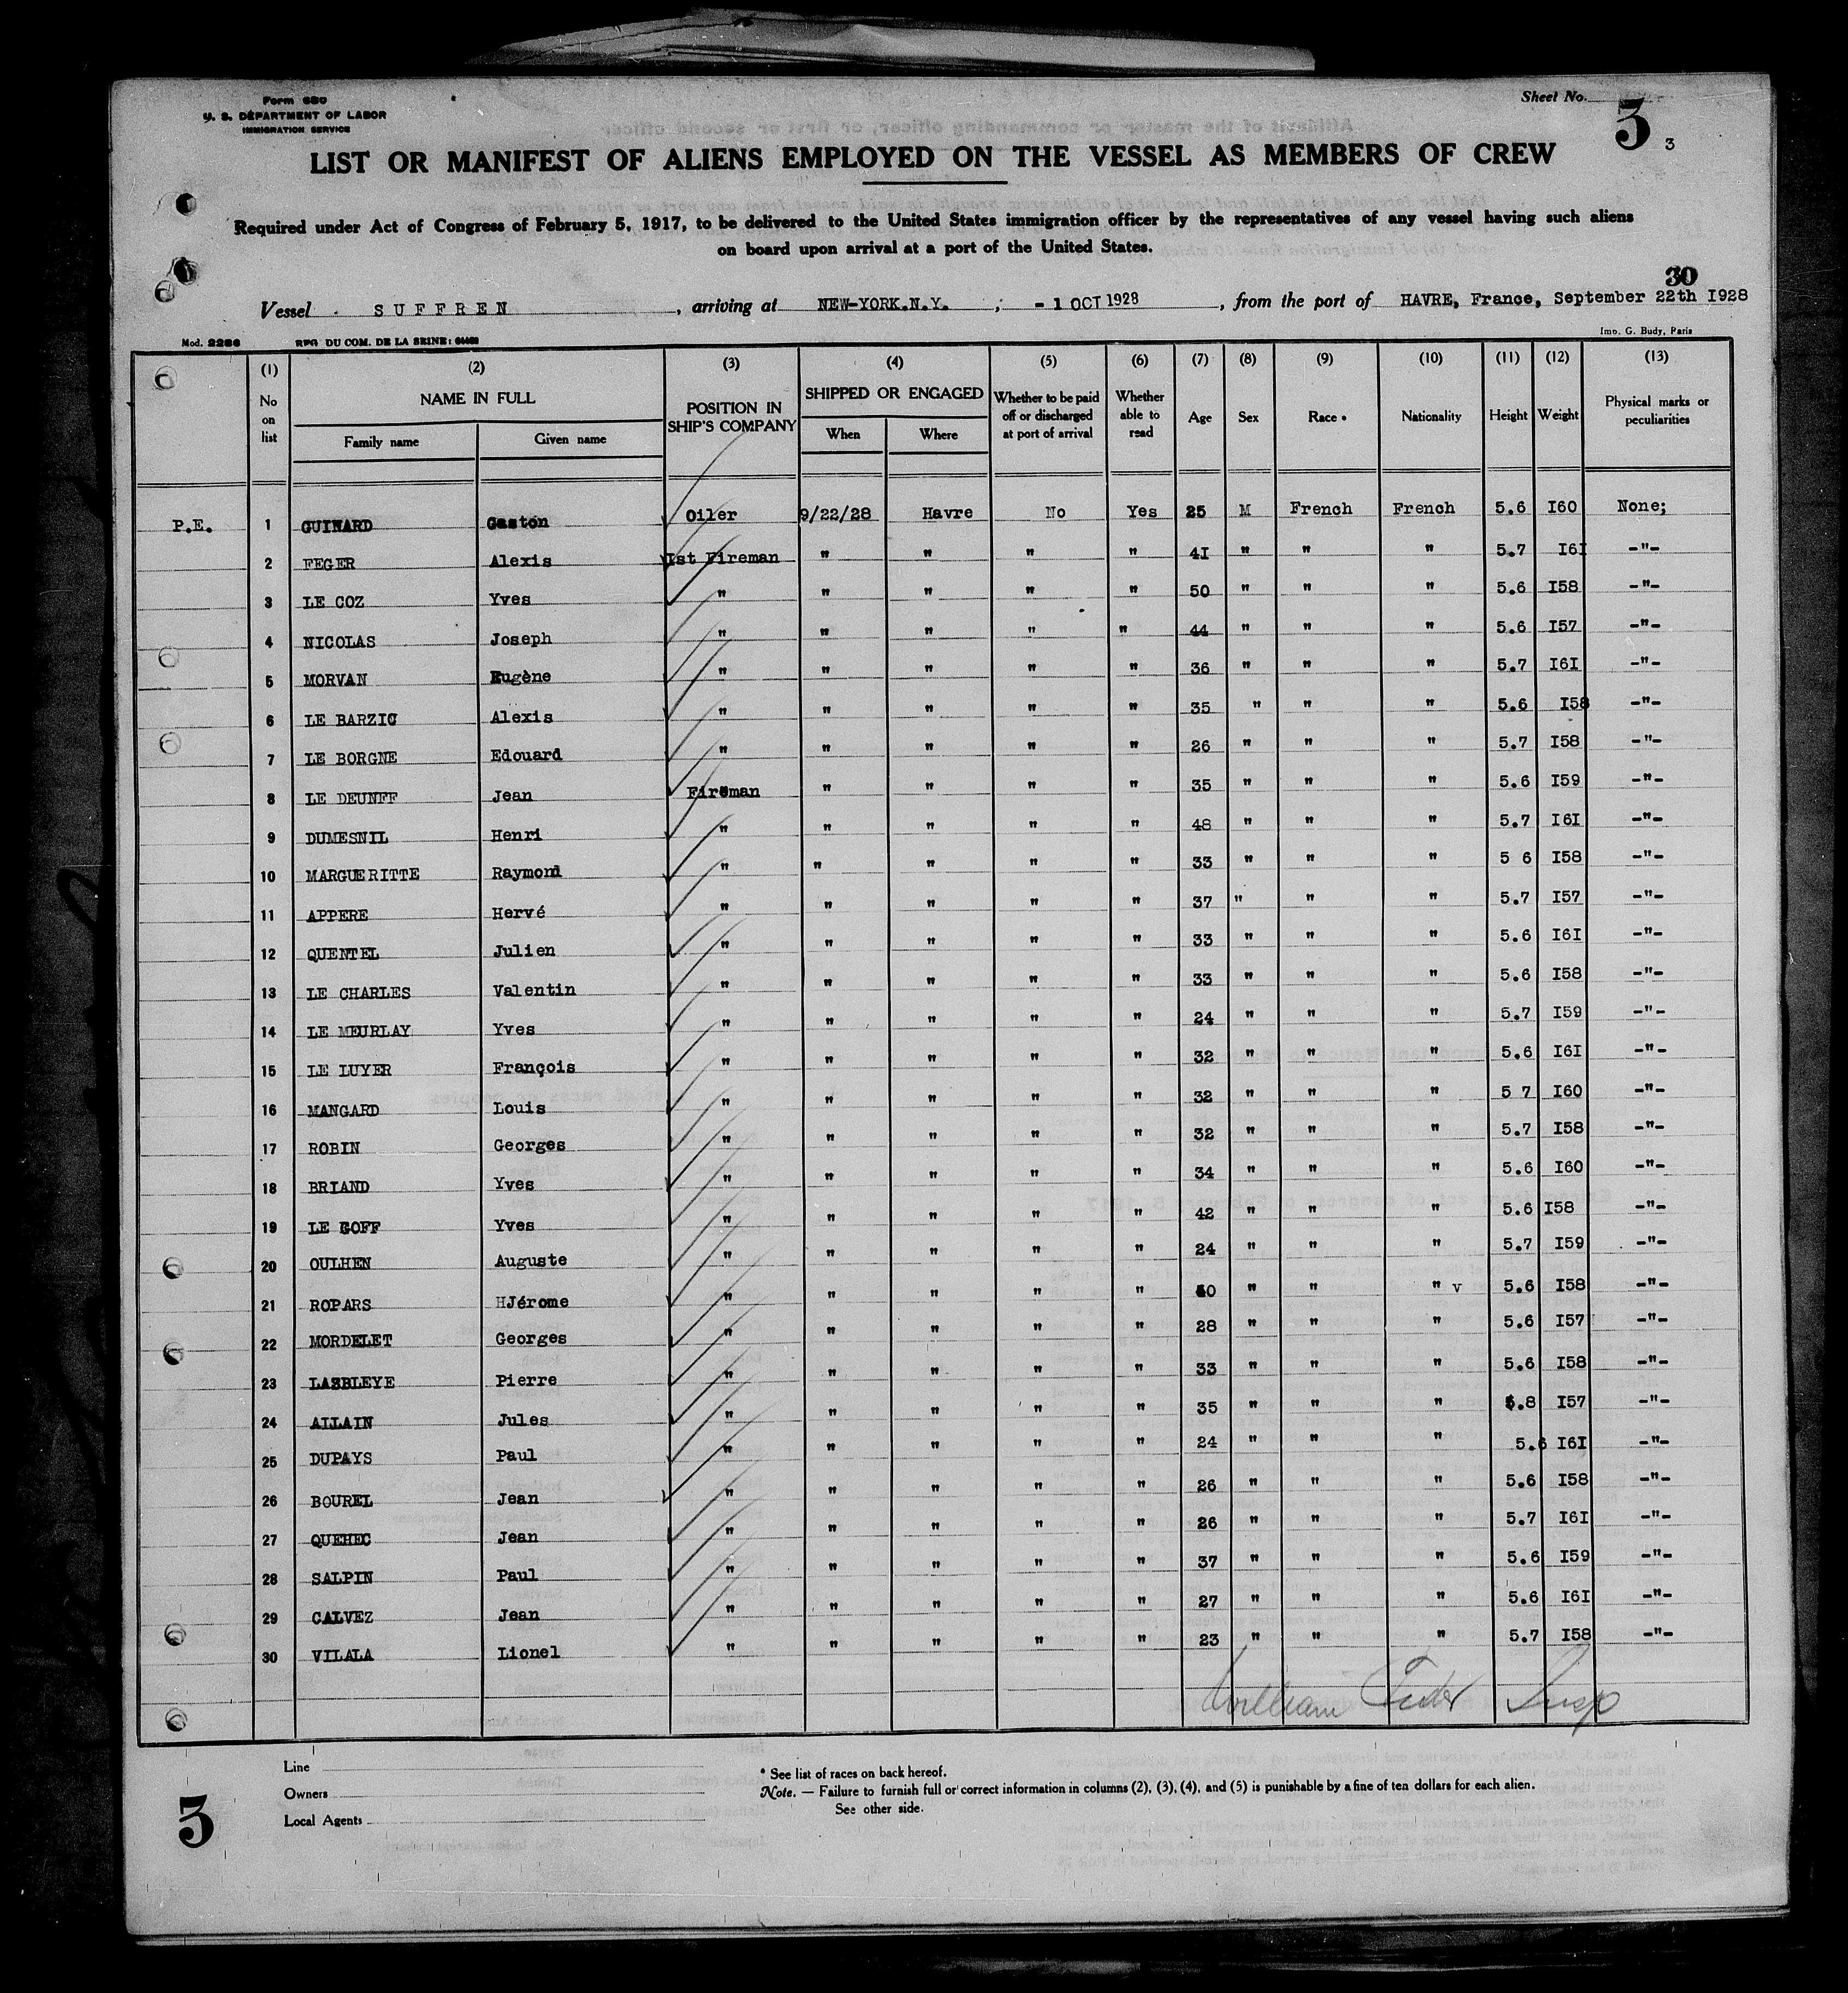 Form 680
U. S. DEPARTMENT OF LABOR
IMMIGRATION SERVICE
Sheet No. 3
3
LIST OR MANIFEST OF ALIENS EMPLOYED ON THE VESSEL AS MEMBERS OF CREW
Required under Act of Congress of February 5, 1917, to be delivered to the United States immigration officer by the representatives of any vessel having such aliens
on board upon arrival at a port of the United States.
30
Vessel SUFFREN, arriving at NEW-YORK.N.Y. ; - 1 OCT 1928, from the port of HAVRE, France, September 22th I928
Mod. 2286 REG. DU COM. DE LA SEINE: Imp. G. Budy, Paris
(1) (2) (3) (4) (5) (6) (7) (8) (9) (10) (11) (12) (13)
No on list NAME IN FULL POSITION IN SHIP'S COMPANY SHIPPED OR ENGAGED Whether to be paid off or discharged at port of arrival Whether able to read Age Sex Race * Nationality Height Weight Physical marks or peculiarities
Family name Given name When Where
P.E. 1 GUINARD Gaston Oiler 9/22/28 Havre No Yes 25 M French French 5.6 I60 None;
2 FEGER Alexis Ist Fireman " " " " 4I " " " 5.7 I6I -"-
3 LE COZ Yves " " " " " 50 " " " 5.6 I58 -"-
4 NICOLAS Joseph " " " " " 44 " " " 5.6 I57 -"-
5 MORVAN Eugène " " " " " 36 " " " 5.7 I6I -"-
6 LE BARZIC Alexis " " " " " 35 " " " 5.6 I58 -"-
7 LE BORGNE Edouard " " " " " 26 " " " 5.7 I58 -"-
8 LE DEUNFF Jean Fireman " " " " 35 " " " 5.6 I59 -"-
9 DUMESNIL Henri " " " " " 48 " " " 5.7 I6I -"-
10 MARGUERITTE Raymond " " " " " 33 " " " 5 6 I58 -"-
11 APPERE Hervé " " " " " 37 " " " 5.7 I57 -"-
12 QUENTEL Julien " " " " " 33 " " " 5.6 I6I -"-
13 LE CHARLES Valentin " " " " " 33 " " " 5.6 I58 -"-
14 LE MEURLAY Yves " " " " " 24 " " " 5.7 I59 -"-
15 LE LUYER François " " " " " 32 " " " 5.6 I6I -"-
16 MANGARD Louis " " " " " 32 " " " 5 7 I60 -"-
17 ROBIN Georges " " " " " 32 " " " 5.7 I58 -"-
18 BRIAND Yves " " " " " 34 " " " 5.6 I60 -"-
19 LE GOFF Yves " " " " " 42 " " " 5.6 I58 -"-
20 OULHEN Auguste " " " " " 24 " " " 5.7 I59 -"-
21 ROPARS HJérome " " " " " " " " v 5.6 I58 -"-
22 MORDELET Georges " " " " " 28 " " " 5.6 I57 -"-
23 LASBLEYE Pierre " " " " " 33 " " " 5.6 I58 -"-
24 ALLAIN Jules " " " " " 35 " " " 5.8 I57 -"-
25 DUPAYS Paul " " " " " 24 " " " 5.6 I6I -"-
26 BOUREL Jean " " " " " 26 " " " 5.6 I58 -"-
27 QUEHEC Jean " " " " " 26 " " " 5.7 I6I -"-
28 SALPIN Paul " " " " " 37 " " " 5.6 I59 -"-
29 CALVEZ Jean " " " " " 27 " " " 5.6 I6I -"-
30 VILALA Lionel " " " " " 23 " " " 5.7 I58 -"-
William Insp
Line
Owners
Local Agents
* See list of races on back hereof.
Note. — Failure to furnish full or correct information in columns (2), (3), (4), and (5) is punishable by a fine of ten dollars for each alien.
See other side.
3